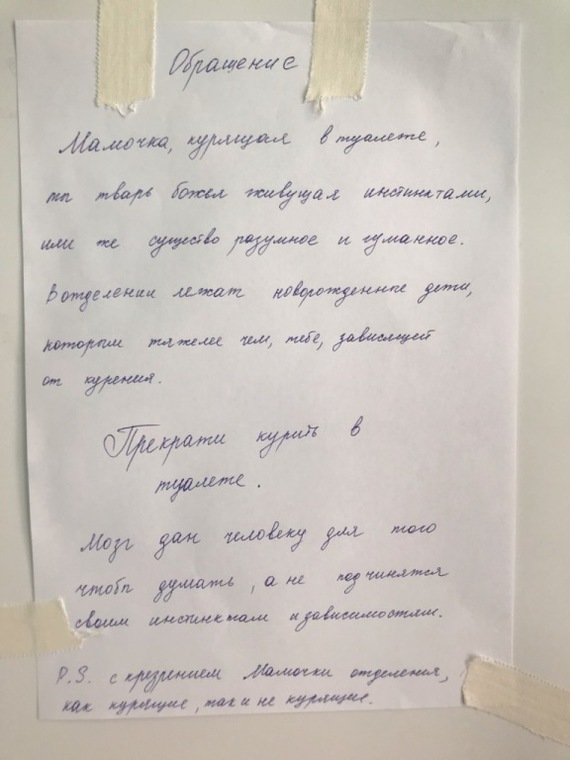 Обращение
Мамочка, курящая в туалете,
ты тварь божья живущая инстинктами,
или же существо разумное и гуманное.
В отделении лежат новорожденные дети,
которым тяжелее чем, тебе, зависящей
от курения.
Прекрати курить в
туалете.
Мозг дан человеку для того
чтобы думать, а не подчинятся
своим инстинктам и зависимостям.
P.S. с презрением Мамочки отделения,
как курящие, так и не курящие.